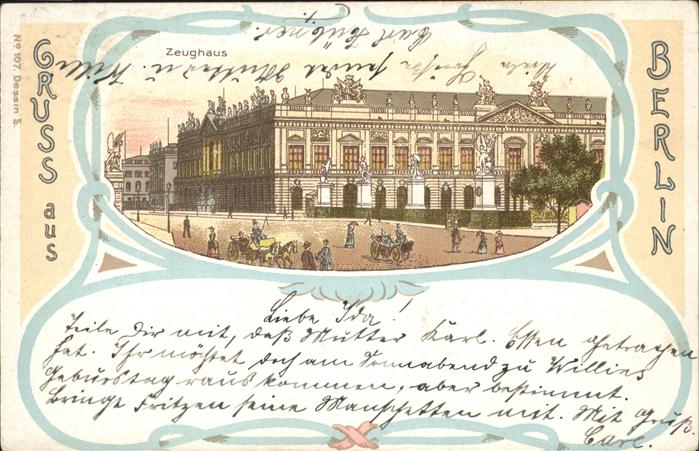 GRUSS aus
BERLIN
Zeughaus
Nº 107. Dessein 5
Viele Grüße sendet Mutter u. Willi
Carl
Liebe Ida!
Teile Dir mit, daß Mutter Karl. Essen getrachen
hat. Ihr möchtet doch am Sonnabend zu Willies
Geburstag rauskommen, aber bestimmt.
Bringt Fritzen seine Manschetten mit. Mit Gruß.
Carl.